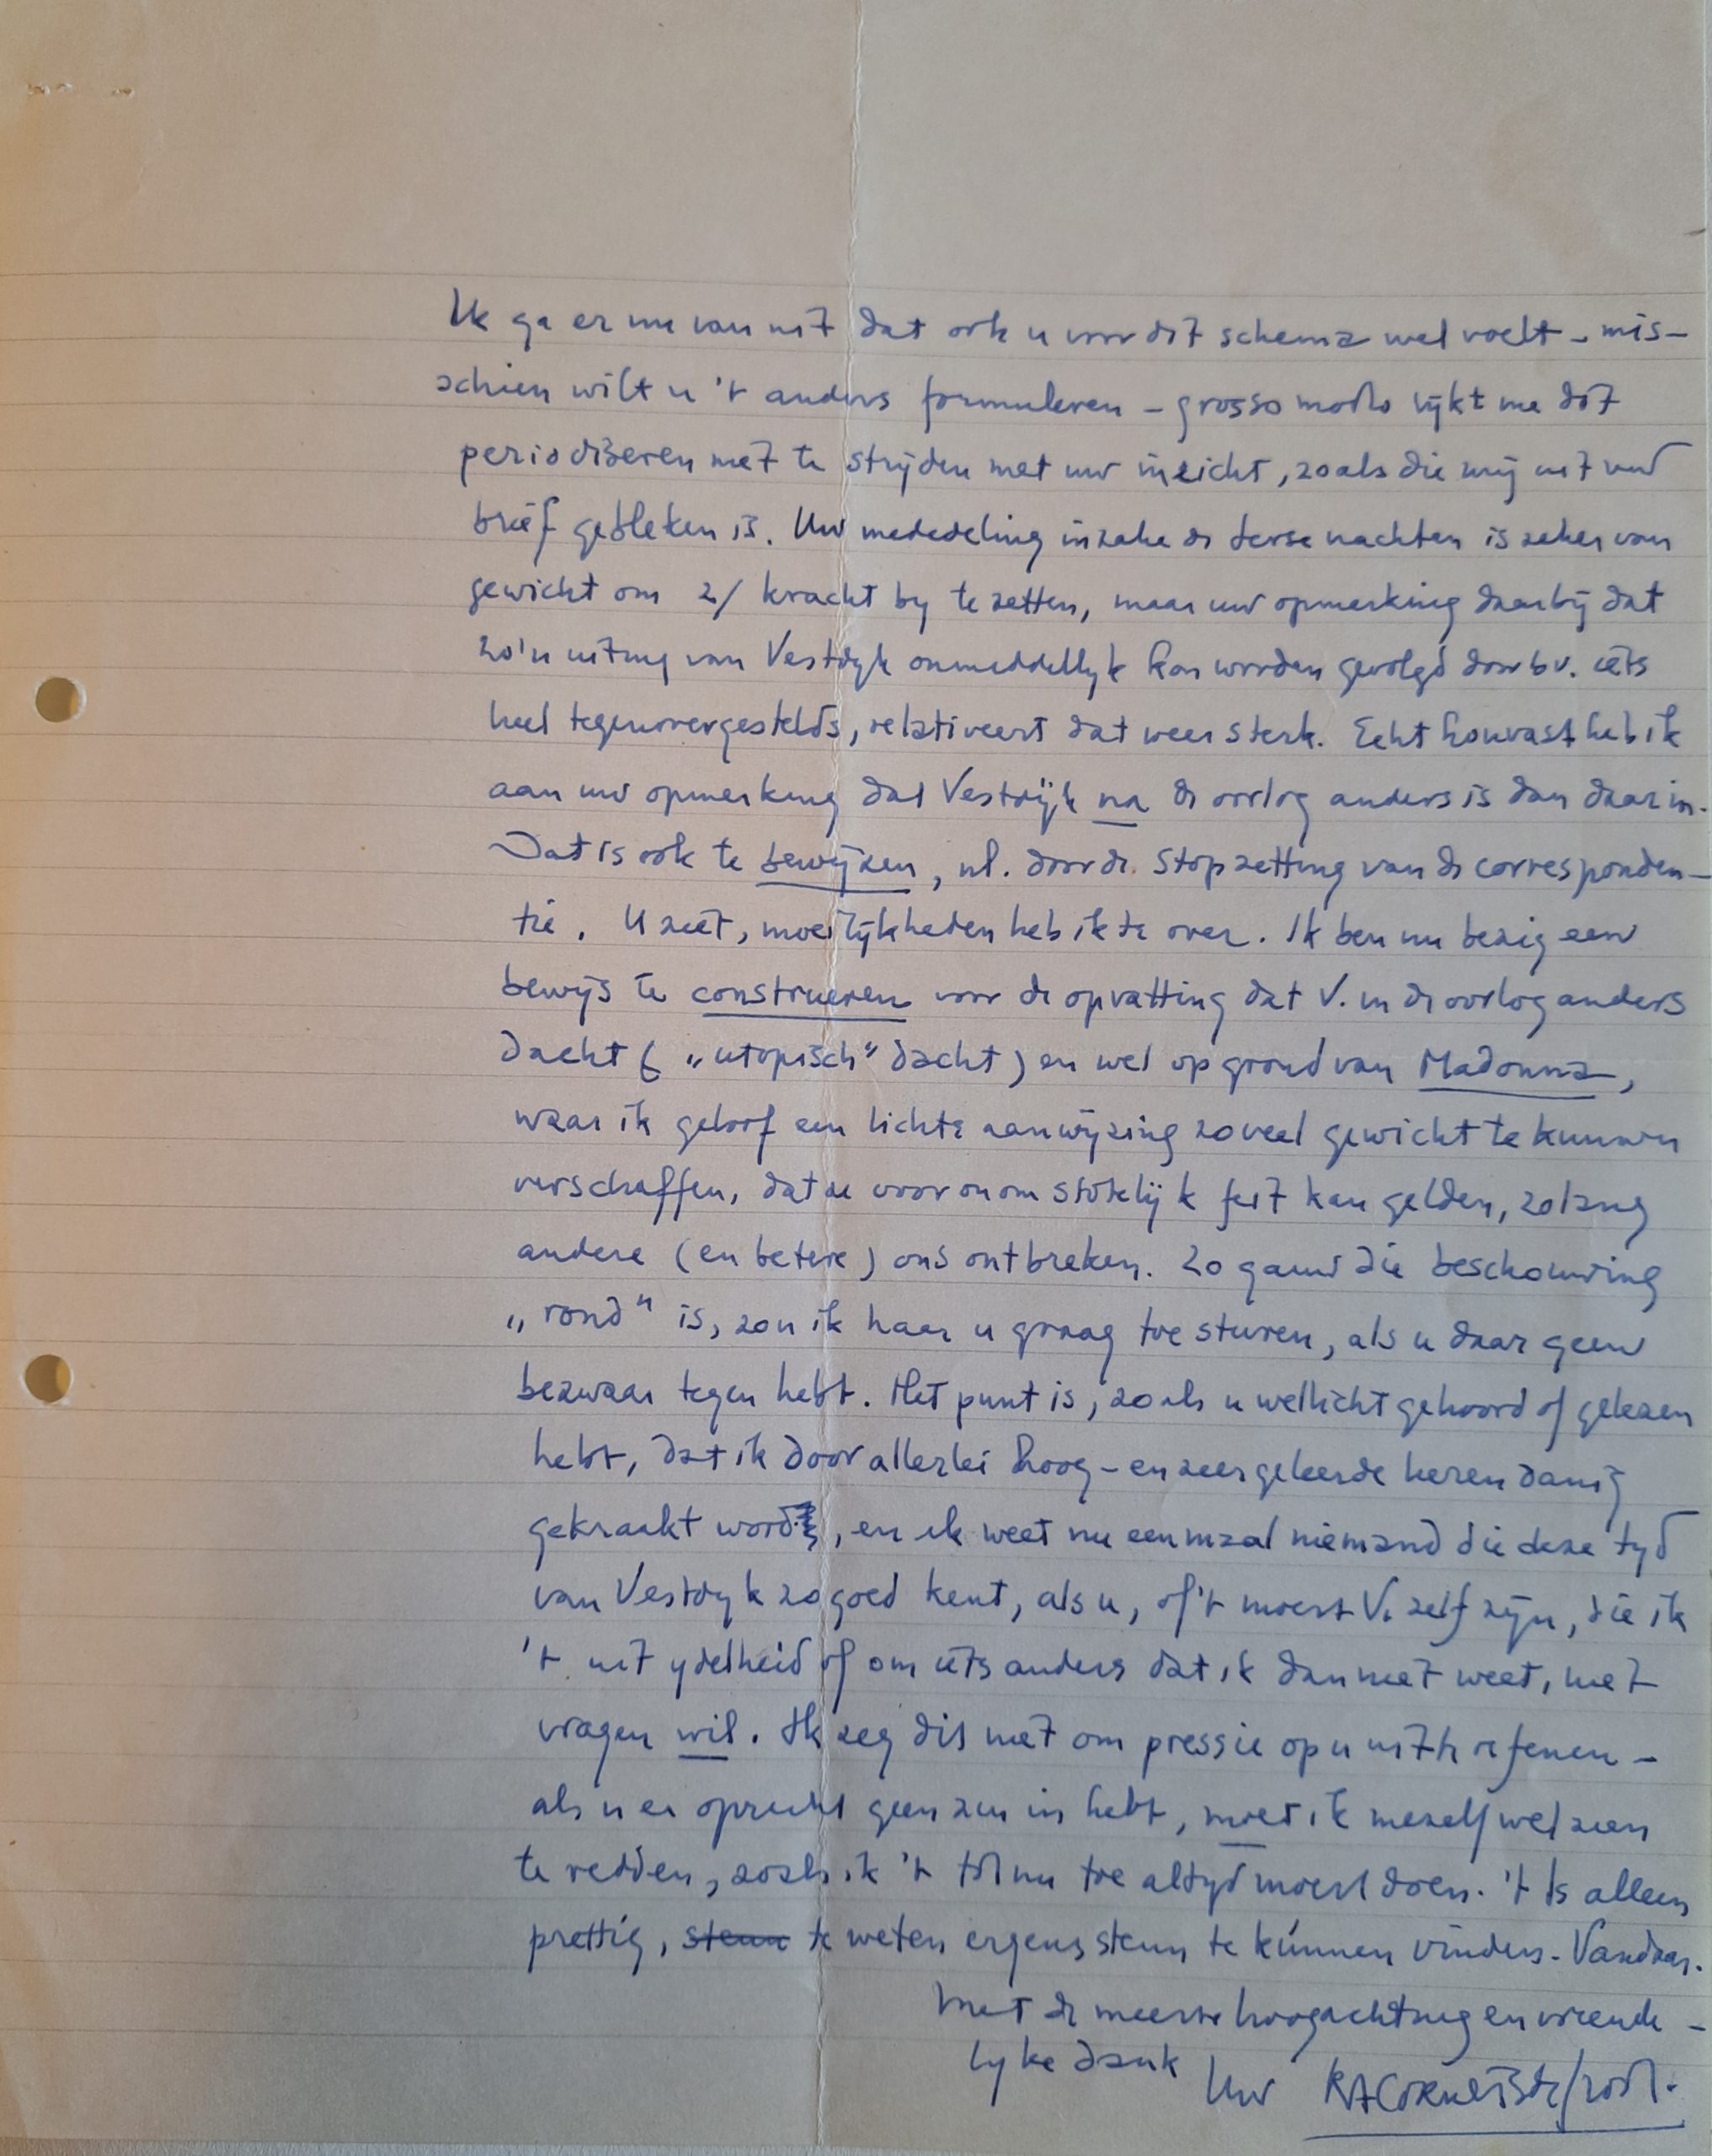 Ik ga er nu van uit dat ook u voor dit schema wel voelt - mis-
schien wilt u 't anders formuleren - grosso modo lijkt me dit
periodiseren niet te strijden met uw inzicht, zoals die mij uit uw
brief gebleken is. Uw mededeling inzake de derse nachten is zeker van
gewicht om 2/ kracht by te zetten, maar uw opmerking daarbij dat
zo'n uiting van Vestdyk onmiddellyk kan worden gevolgd door bv. iets
heel tegenovergestelds, relativeert dat weer sterk. Echt houvast heb ik
aan uw opmerking dat Vestdijk na de oorlog anders is dan daarin.
Dat is ook te bewijzen, nl. door de stopzetting van de corresponden-
tie. U ziet, moeilijkheden heb ik te over. Ik ben nu bezig een
bewijs te construeren voor de opvatting dat V. in de oorlog anders
dacht ( „utopisch" dacht) en wel op grond van Madonna,
waar ik geloof een lichte aanwijzing zoveel gewicht te kunnen
verschaffen, dat ze voor onomstotelijk feit kan gelden, zolang
andere (en betere) ons ontbreken. Zo gauw die beschouwing
„rond" is, zou ik haar u graag toe sturen, als u daar geen
bezwaar tegen hebt. Het punt is, zoals u wellicht gehoord of gelezen
hebt, dat ik door allerlei hoog- en zeergeleerde heren danig
gekraakt word, en ik weet nu eenmaal niemand die deze tyd
van Vestdyk zo goed kent, als u, of 't moest V. zelf zijn, die ik
't uit ydelheid of om iets anders dat ik dan niet weet, niet
vragen wil. Ik zeg dit niet om pressie op u uit te oefenen -
als u er oprecht geen zin in hebt, moet ik mezelf wel zien
te redden, zoals ik 't tot nu toe altyd moest doen. 't Is alleen
prettig, steun te weten ergens steun te kúnnen vinden. Vandaar.
Met de meeste hoogachting en vriende-
lyke dank
Uw